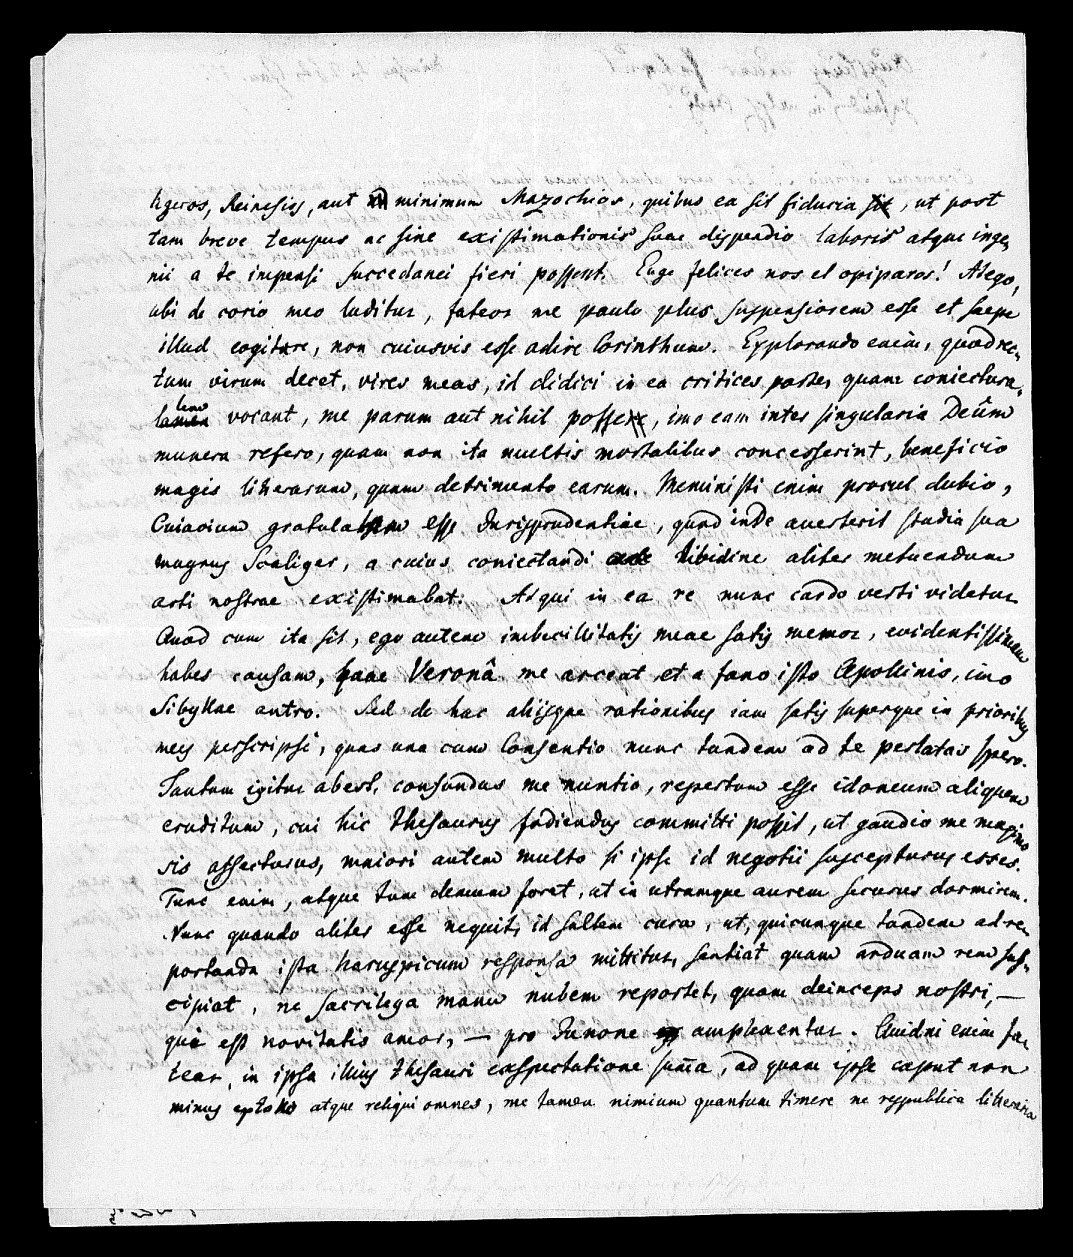 ligeros, Reinesios, aut minimum Mazochios, quibus ea sit fiducia, ut post
tam breve tempus ac sine existimationis suae dispendio laboris atque inge
nii a te impensi succedanei fieri possent. Euge felices nos et opiparos! At ego,
ubi de corio meo luditur, fateor me paulo plus suspensiorem esse et saepe
illud cogitare, non cuiusvis esse adire Corinthum. Explorando enim, quod rec-
tum virum decet, vires meas, id didici in ea critices parte, quam coniectura-
lem vocant, me parum aut nihil posse, imo eam inter singularia Deûm
munera refero, quam non ita multis mortalibus concesserint, beneficio
magis litterarum, quam detrimento earum. Meministi enim procul dubio,
Cuiacium gratulatum esse Jurisprudentiae, quod inde averterit studia sua
magnus Scaliger, a cuius coniectandi libidine aliter metuendum
arti nostrae existimabat. Atqui in ea re nunc cardo verti videtur
Quod cum ita sit, ego autem imbecillitatis meae satis memor, evidentissimam
habes causam, quae Veronâ me arceat et a fano isto Apollinis, imo
Sibyllae antro. Sed de hac aliisque rationibus iam satis superque in prioribus
meis perscripsi, quas una cum Consentio nunc tandem ad te perlatas spero.
Tantum igitur abest, confundas me nuntio, repertum esse idoneum aliquem
eruditum, cui hic thesaurus fodiendus committi possit, ut gaudio me magno
sis affecturus, maiori autem multo si ipse id negotii suscepturus esses.
Tunc enim, atque tum demum foret, ut in utramque aurem securus dormirem.
Nunc quando aliter esse nequit, id saltem cura, ut, quicunque tandem ad re-
portanda ista haruspicum responsa mittitur, sentiat quam arduam rem sus-
cipiat, ne sacrilega manu nubem reportet, quam deinceps nostri, —
qui est novitatis amor, — pro Junone amplexentur. Quidni enim fa
tear, in ipsa illius thesauri exspectatione summa, ad quam ipse caput non
minus atque reliqui omnes, me tamen nimium quantum timere ne respublica litteraria